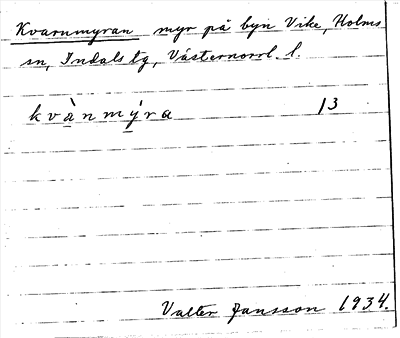 Kvarnmyran myr på byn Vike, Holms
sn, Indals tg, Västernorrl. l.
kvànmýra 13
Valter Jansson 1934.